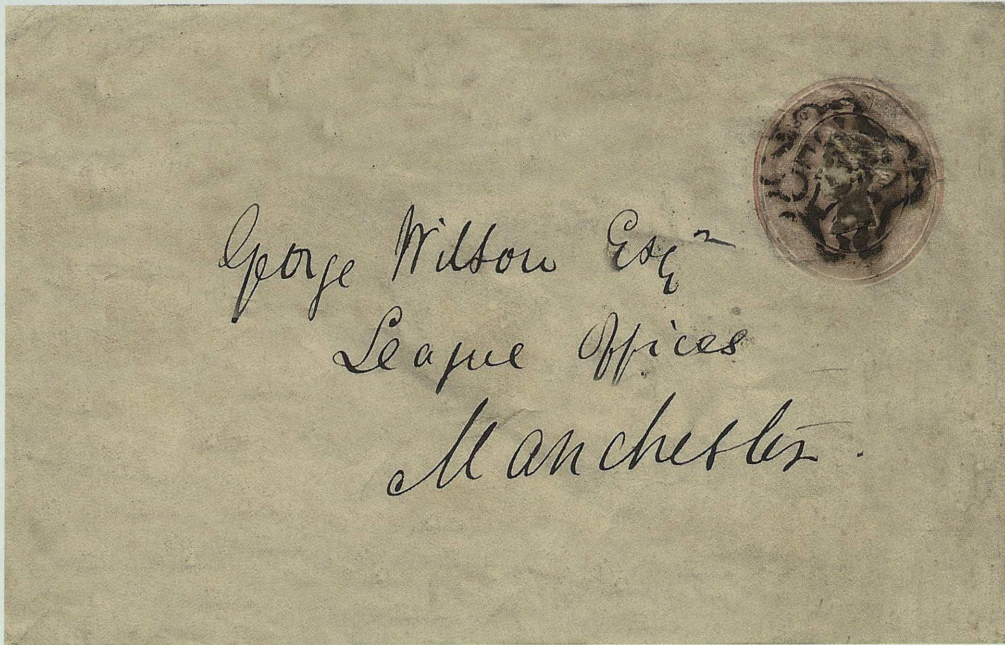 George Wilson Esqr
League Offices
Manchester.